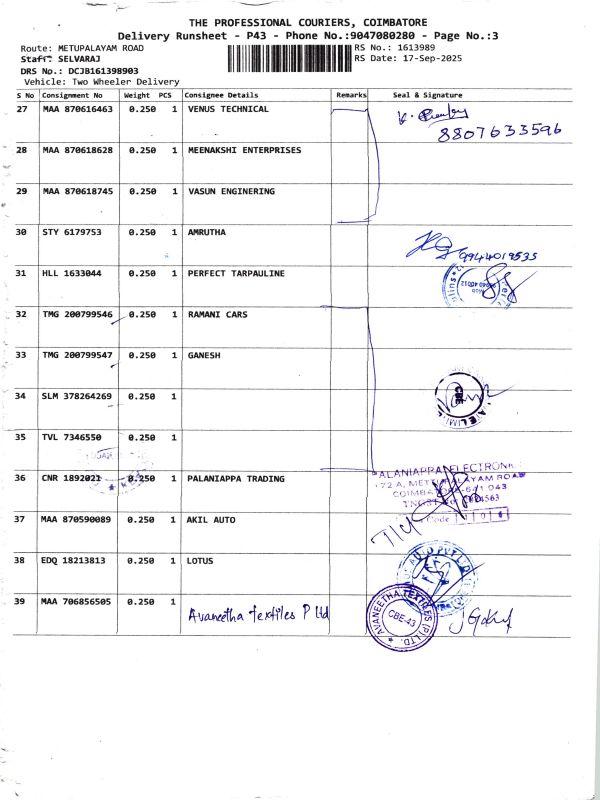 THE PROFESSIONAL COURIERS, COIMBATORE
Delivery Runsheet - P43 - Phone No.:9047080280 - Page No.:3
Route: METUPALAYAM ROAD RS No.: 1613989
Staff: SELVARAJ RS Date: 17-Sep-2025
DRS No.: DCJB161398903
Vehicle: Two Wheeler Delivery
S No Consignment No Weight PCS Consignee Details Remarks Seal & Signature
27 MAA 870616463 0.250 1 VENUS TECHNICAL
8807633596
28 MAA 870618628 0.250 1 MEENAKSHI ENTERPRISES
29 MAA 870618745 0.250 1 VASUN ENGINERING
30 STY 6179753 0.250 1 AMRUTHA
9944019535
31 HLL 1633044 0.250 1 PERFECT TARPAULINE
32 TMG 200799546 0.250 1 RAMANI CARS
33 TMG 200799547 0.250 1 GANESH
34 SLM 378264269 0.250 1
CBE
35 TVL 7346550 0.250 1
36 CNR 1892021 0.250 1 PALANIAPPA TRADING
172 A, METTUPALAYAM ROAD
37 MAA 870590089 0.250 1 AKIL AUTO
Code
38 EDQ 18213813 0.250 1 LOTUS
39 MAA 706856505 0.250 1 Avaneetha Textiles P Ltd
AVANEETHA TEXTILES (P) LTD.
CBE-43